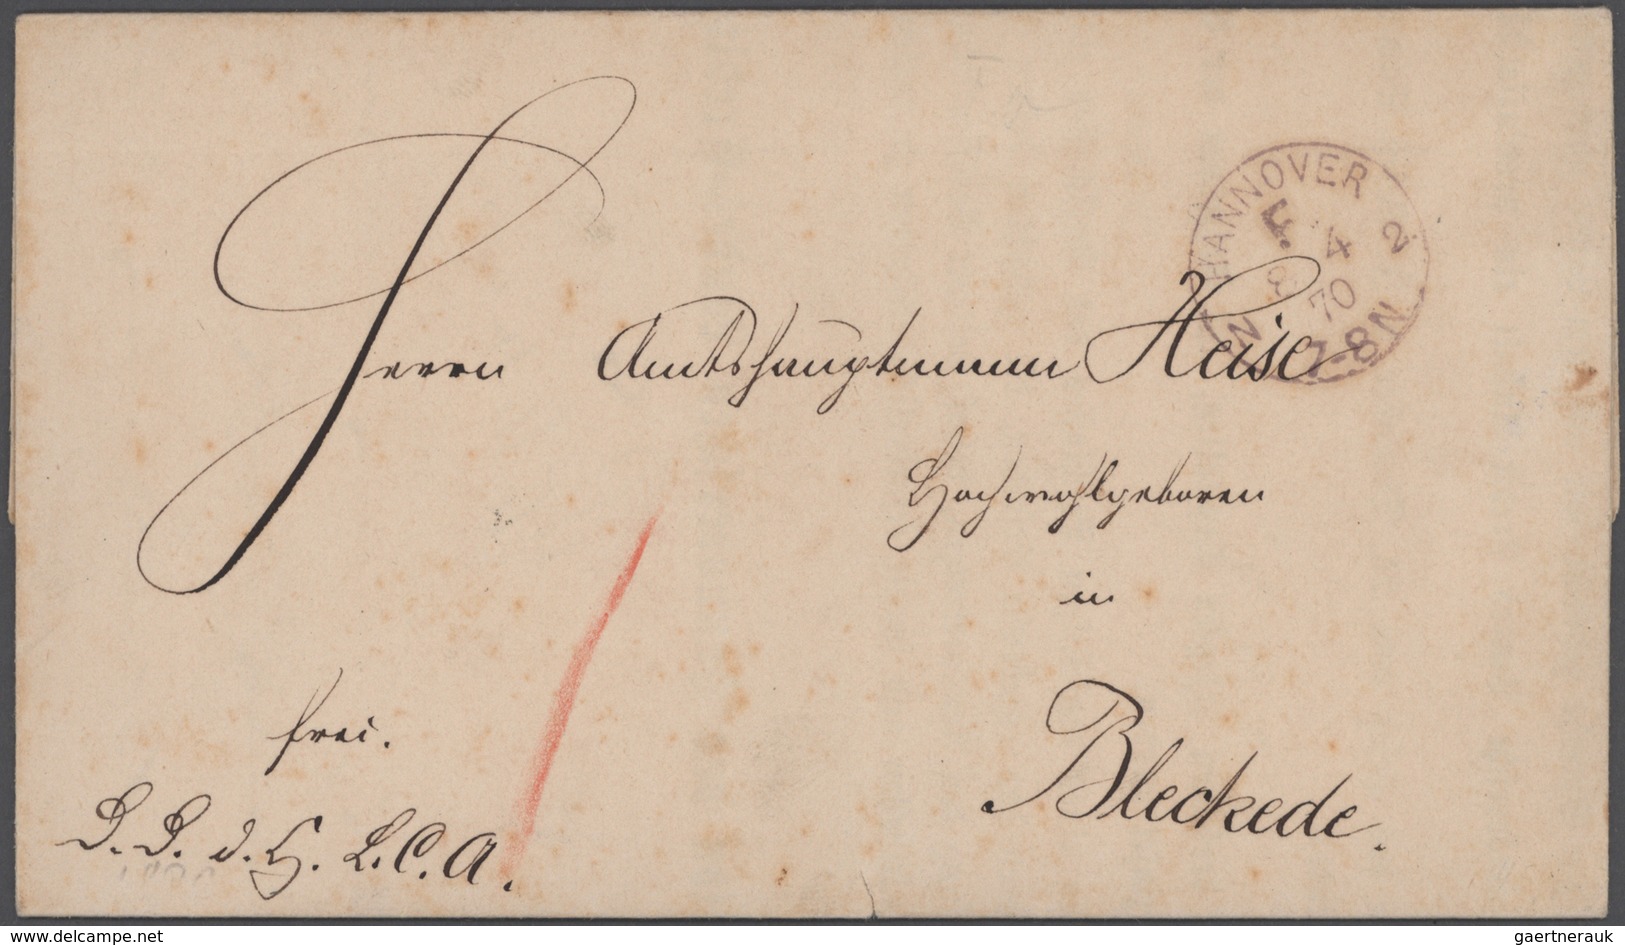 HANNOVER 2
4
70
7-8N
Herrn Amtshauptmann Heise
Hochwohlgeboren
in
Bleckede.
frei.
L.C.A.
www.delcampe.net
gaertnerauk